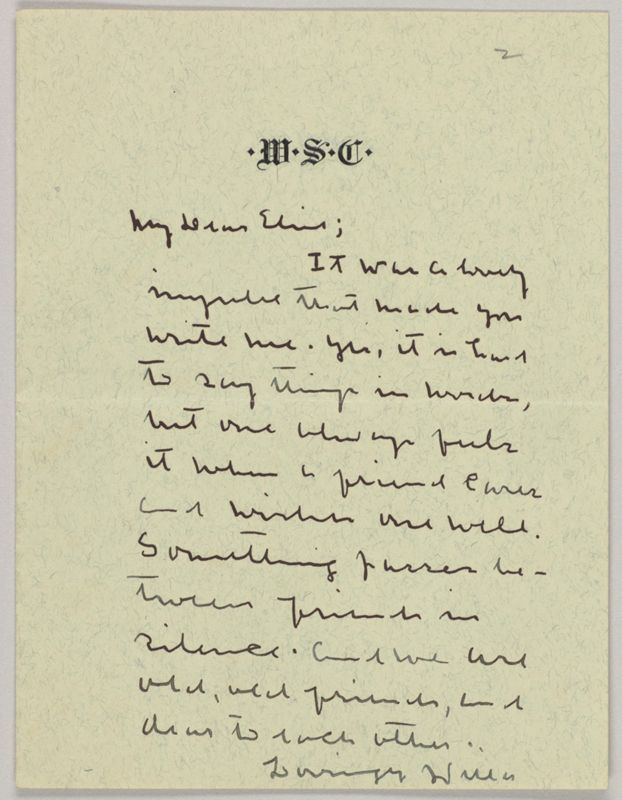 2
·W·S·C·
My Dear Elsie;
It was a lovely
impulse that made you
write me. Yes, it is hard
to say things in words,
but one always feels
it when a friend cares
and wishes one well.
Something passes be-
tween friends in
silence. And we are
old, old friends, and
dear to each other..
Lovingly Willa